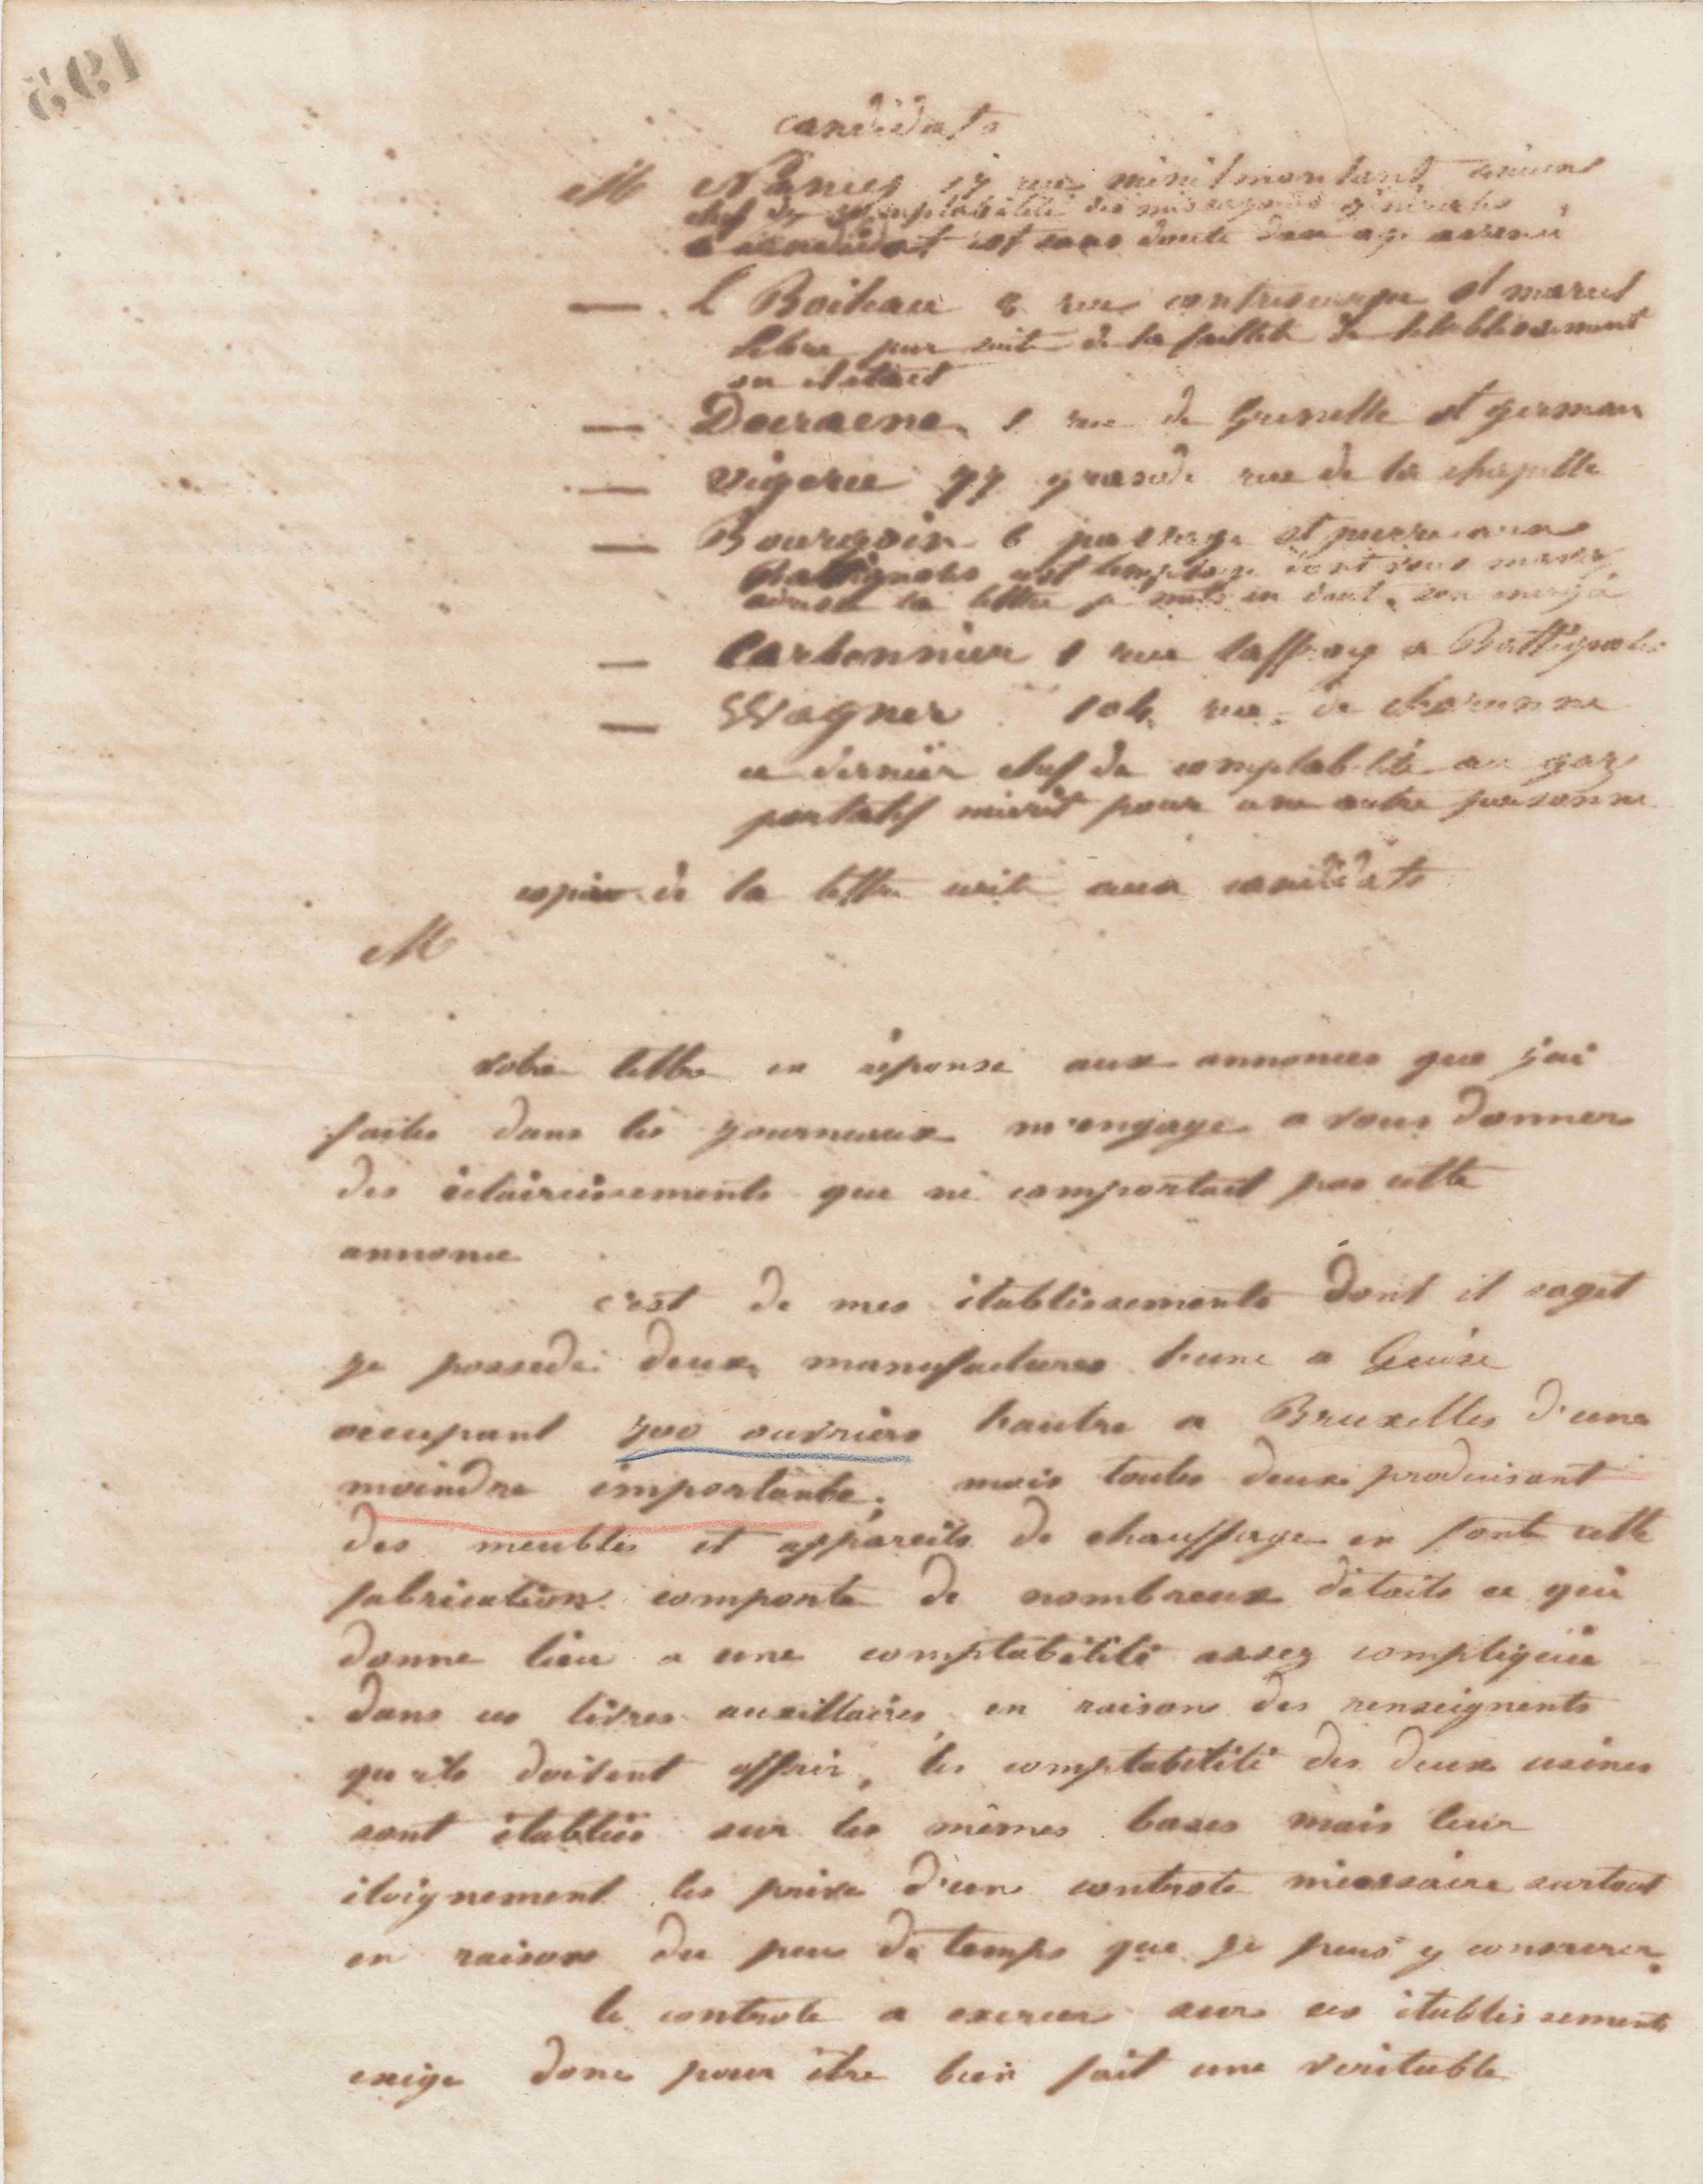 195
candidats
M Nanies 17 rue ménilmontant ancien
chef de comptabilité des messageries générales
ce candidat est sans doute d'un age avancé
— L Boileau 8 rue contrescarpe st marcel
libre par suite de la faillite de letablissement
ou il était
— Douraene 1 rue de Grenelle st germain
— Vigerie 77 grande rue de la chapelle
— Bourgoin 6 passage st pierre aux
Batignoles est lemploye dont vous mavez
la lettre je mets en doute son energie
— Carbonnier 1 rue laffroy a Battignoles
— Wagner 104 rue de charonne
ce dernier chef de comptabilité au gaz
portatif mécrit pour une autre personne
copie de la lettre ecrite aux candidats
M
votre lettre en réponse aux annonces que j'ai
faites dans les journeaux m'engage a vous donner
des éclaircissements que ne comportait pas cette
annonce
c'est de mes établissements dont il sagit
je possede deux manufactures lune a Guise
occupant 700 ouvriers lautre a Bruxelles d'une
moindre importante, mais toutes deux produisant
des meubles et appareils de chauffage en fonte cette
fabrication comporte de nombreux détails ce qui
donne lieu a une comptabilité assez compliquée
dans ces livres auxillaires en raison des renseignents
qu'ils doivent offrir, les comptabilité des deux usines
sont établies sur les mêmes bases mais leur
éloignement les prive d'un controle nécessaire surtout
en raison du peu de temps que je puis y consacrer.
le controle a exercer sur ces établissements
exige donc pour être bien fait une véritable